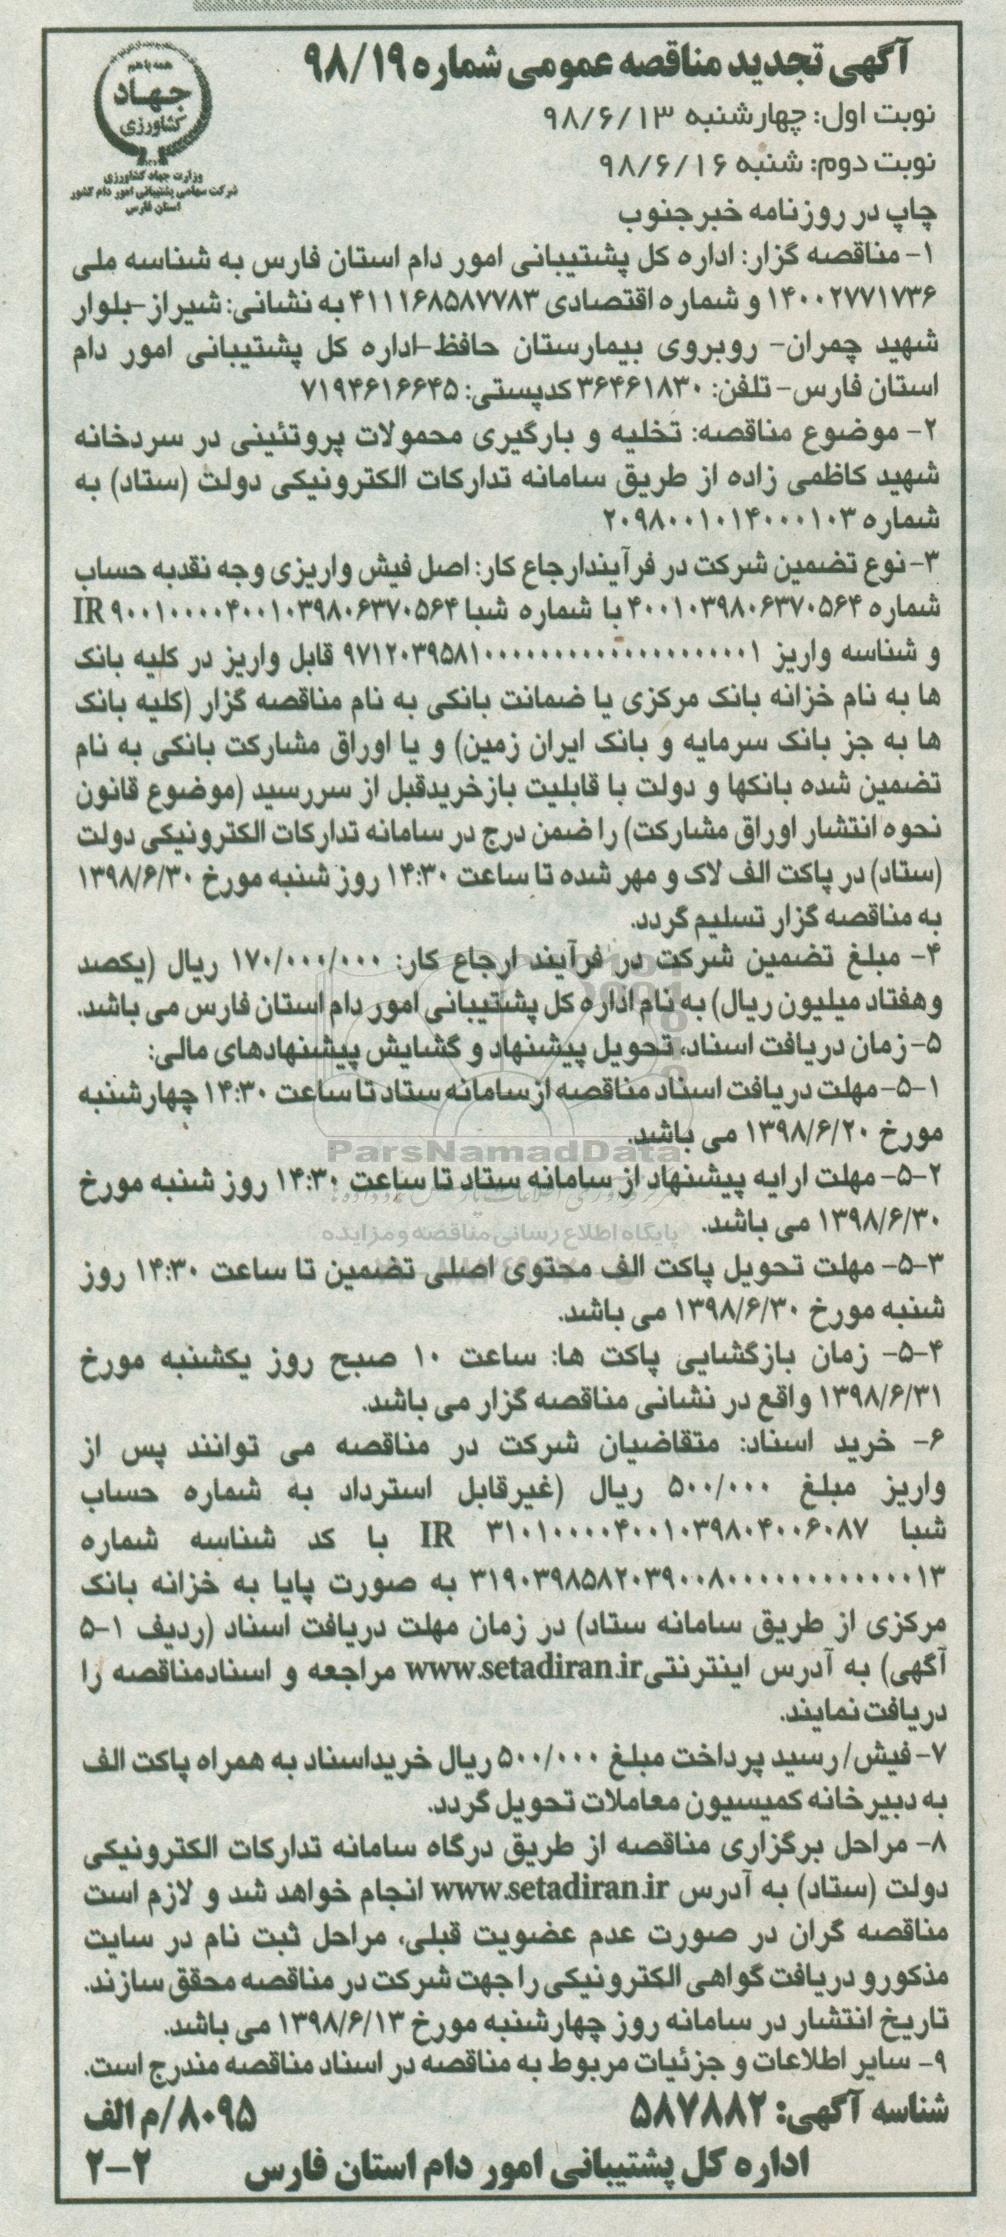 آگهی تجدید مناقصه عمومی شماره ۹۸/۱۹
همه با هم
جهاد
کشاورزی
وزارت جهاد کشاورزی
شرکت سهامی پشتیبانی امور دام کشور
استان فارس
نوبت اول: چهارشنبه ۹۸/۶/۱۳
نوبت دوم: شنبه ۹۸/۶/۱۶
چاپ در روزنامه خبرجنوب
۱- مناقصه گزار: اداره کل پشتیبانی امور دام استان فارس به شناسه ملی
۱۴۰۰۲۷۷۱۷۳۶ و شماره اقتصادی ۴۱۱۱۶۸۵۸۷۷۸۳ به نشانی: شیراز-بلوار
شهید چمران- روبروی بیمارستان حافظ-اداره کل پشتیبانی امور دام
استان فارس- تلفن: ۳۶۴۶۱۸۳۰ کدپستی: ۷۱۹۴۶۱۶۶۴۵
۲- موضوع مناقصه: تخلیه و بارگیری محمولات پروتئینی در سردخانه
شهید کاظمی زاده از طریق سامانه تدارکات الکترونیکی دولت (ستاد) به
شماره ۲۰۹۸۰۰۱۰۱۴۰۰۰۱۰۳
۳- نوع تضمین شرکت در فرآیندارجاع کار: اصل فیش واریزی وجه نقدبه حساب
شماره ۴۰۰۱۰۳۹۸۰۶۳۷۰۵۶۴ با شماره شبا IR ۹۰۰۱۰۰۰۰۴۰۰۱۰۳۹۸۰۶۳۷۰۵۶۴
و شناسه واریز ۹۷۱۲۰۳۹۵۸۱۰۰۰۰۰۰۰۰۰۰۰۰۰۰۰۰۰۰۰۱ قابل واریز در کلیه بانک
ها به نام خزانه بانک مرکزی یا ضمانت بانکی به نام مناقصه گزار (کلیه بانک
ها به جز بانک سرمایه و بانک ایران زمین) و یا اوراق مشارکت بانکی به نام
تضمین شده بانکها و دولت با قابلیت بازخریدقبل از سررسید (موضوع قانون
نحوه انتشار اوراق مشارکت) را ضمن درج در سامانه تدارکات الکترونیکی دولت
(ستاد) در پاکت الف لاک و مهر شده تا ساعت ۱۴:۳۰ روز شنبه مورخ ۱۳۹۸/۶/۳۰
به مناقصه گزار تسلیم گردد.
۴- مبلغ تضمین شرکت در فرآیند ارجاع کار: ۱۷۰/۰۰۰/۰۰۰ ریال (یکصد
وهفتاد میلیون ریال) به نام اداره کل پشتیبانی امور دام استان فارس می باشد.
۵- زمان دریافت اسناد، تحویل پیشنهاد و گشایش پیشنهادهای مالی:
۵-۱- مهلت دریافت اسناد مناقصه ازسامانه ستاد تا ساعت ۱۴:۳۰ چهارشنبه
مورخ ۱۳۹۸/۶/۲۰ می باشد.
ParsNamadData
۵-۲- مهلت ارایه پیشنهاد از سامانه ستاد تا ساعت ۱۴:۳۰ روز شنبه مورخ
۱۳۹۸/۶/۳۰ می باشد.
پایگاه اطلاع رسانی مناقصه و مزایده
۵-۳- مهلت تحویل پاکت الف محتوی اصلی تضمین تا ساعت ۱۴:۳۰ روز
شنبه مورخ ۱۳۹۸/۶/۳۰ می باشد.
۵-۴- زمان بازگشایی پاکت ها: ساعت ۱۰ صبح روز یکشنبه مورخ
۱۳۹۸/۶/۳۱ واقع در نشانی مناقصه گزار می باشد.
۶- خرید اسناد: متقاضیان شرکت در مناقصه می توانند پس از
واریز مبلغ ۵۰۰/۰۰۰ ریال (غیرقابل استرداد به شماره حساب
شبا IR ۳۱۰۱۰۰۰۰۴۰۰۱۰۳۹۸۰۴۰۰۶۰۸۷ با کد شناسه شماره
۳۱۹۰۳۹۸۵۸۲۰۳۹۰۰۸۰۰۰۰۰۰۰۰۰۰۰۰۱۳ به صورت پایا به خزانه بانک
مرکزی از طریق سامانه ستاد) در زمان مهلت دریافت اسناد (ردیف ۱-۵
آگهی) به آدرس اینترنتی www.setadiran.ir مراجعه و اسنادمناقصه را
دریافت نمایند.
۷- فیش/ رسید پرداخت مبلغ ۵۰۰/۰۰۰ ریال خریداسناد به همراه پاکت الف
به دبیرخانه کمیسیون معاملات تحویل گردد.
۸- مراحل برگزاری مناقصه از طریق درگاه سامانه تدارکات الکترونیکی
دولت (ستاد) به آدرس www.setadiran.ir انجام خواهد شد و لازم است
مناقصه گران در صورت عدم عضویت قبلی، مراحل ثبت نام در سایت
مذکورو دریافت گواهی الکترونیکی را جهت شرکت در مناقصه محقق سازند.
تاریخ انتشار در سامانه روز چهارشنبه مورخ ۱۳۹۸/۶/۱۳ می باشد.
۹- سایر اطلاعات و جزئیات مربوط به مناقصه در اسناد مناقصه مندرج است.
شناسه آگهی: ۵۸۷۸۸۲
۸۰۹۵/م الف
اداره کل پشتیبانی امور دام استان فارس
۲-۲